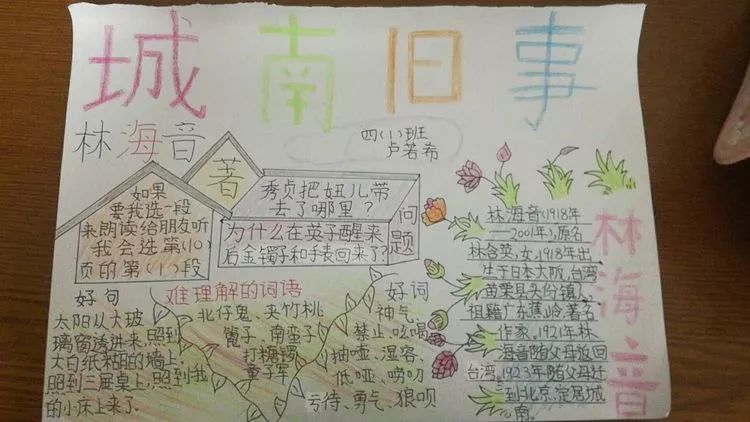 城南旧事
林海音
著
四(1)班
卢若希
如果
要我选一段
来朗读给朋友听
我会选第(10)
页的第(1)段
秀贞把妞儿带
去了哪里？
为什么在英子醒来
后金镯子和手表回来了？
问题
林海音(1918年
—2001年),原名
林含英,女,1918年出
生于日本大阪,台湾
苗栗县头份镇人,
祖籍广东蕉岭,著名
作家,1921年林
海音随父母返回
台湾,1923年随父母迁
到北京,定居城
南。
林海音
好句
太阳从大玻
璃窗透进来,照到
大白纸糊的墙上,
照到三屉桌上,照到我
的小床上来了.
难理解的词语
北仔鬼、夹竹桃
篦子、南蛮子
打糖锣
童子军
好词
神气、
禁止、吆喝
抽哑、湿容、
低哑、唠叨
亏待、勇气、狼呗